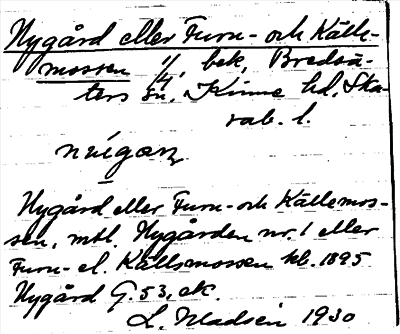 Nygård eller Furu- och Källe-
mossen 1/4, bek, Bredsä-
ters sn, Kinne hd, Ska-
rab. l.
nỳigaɳ
Nygård eller Furu- och Källemos-
sen, mtl. Nygården nr. 1 eller
Furu- el. Källsmossen kb. 1895
Nygård G. 53, ek.
L. Madsén 1930